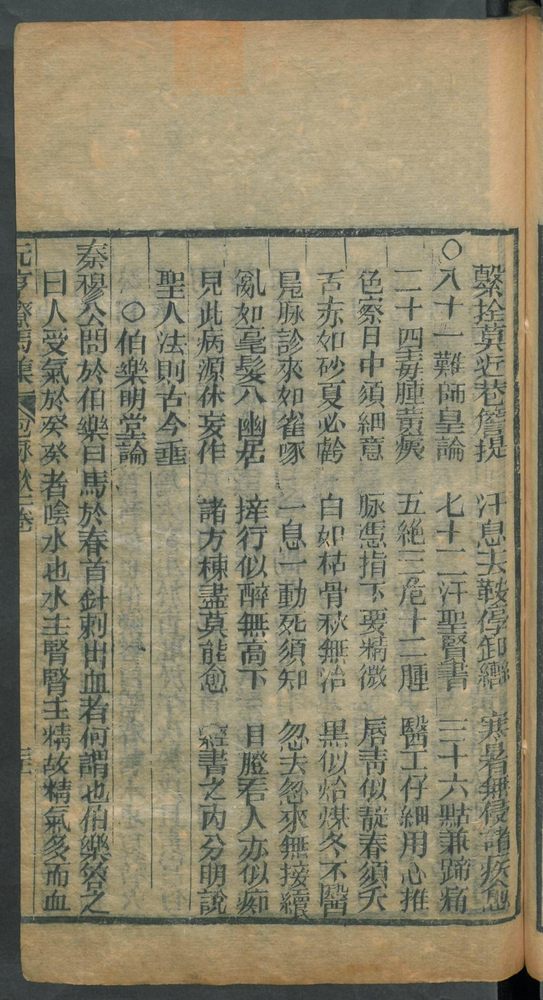 繫拴莫近巷簷提 汗息去鞍停卸韁 寒暑無侵諸疾愈
○八十一難師皇論 七十二汗聖賢書 三十六點兼蹄痛
二十四毒腫黃㾮 五絕三危十二腫 醫工仔細用心推
色察日中須細意 脉憑指下要精微 唇靑似靛春須夭
舌赤如砂夏必𪗨 白如枯骨秋無治 黒似炲煤冬不醫
尾脉診來如雀啄 一息一動死須知 忽去忽來無接續
亂如毫髮八幽居 擇行似醉無高下 目瞪看人亦似痴
見此病源休妄作 諸方㨂盡莫能愈 經書之內分明說
聖人法則古今垂
○伯樂明堂論
秦穆公問於伯樂曰馬於春首針刺出血者何謂也伯樂答之
曰人受氣於癸癸者陰水也水主腎腎主精故精氣多而血
元亨療馬集 卷